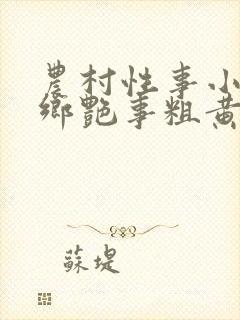 農村性事小
鄉艷事粗黃
蘇堤